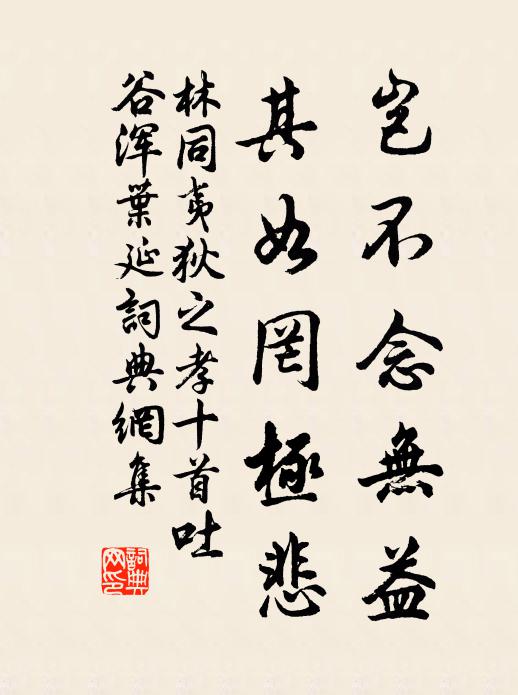 豈不念無益
其如罔極悲
林同夷狄之孝十首吐
谷渾葉延詞典網集
詞典
网印